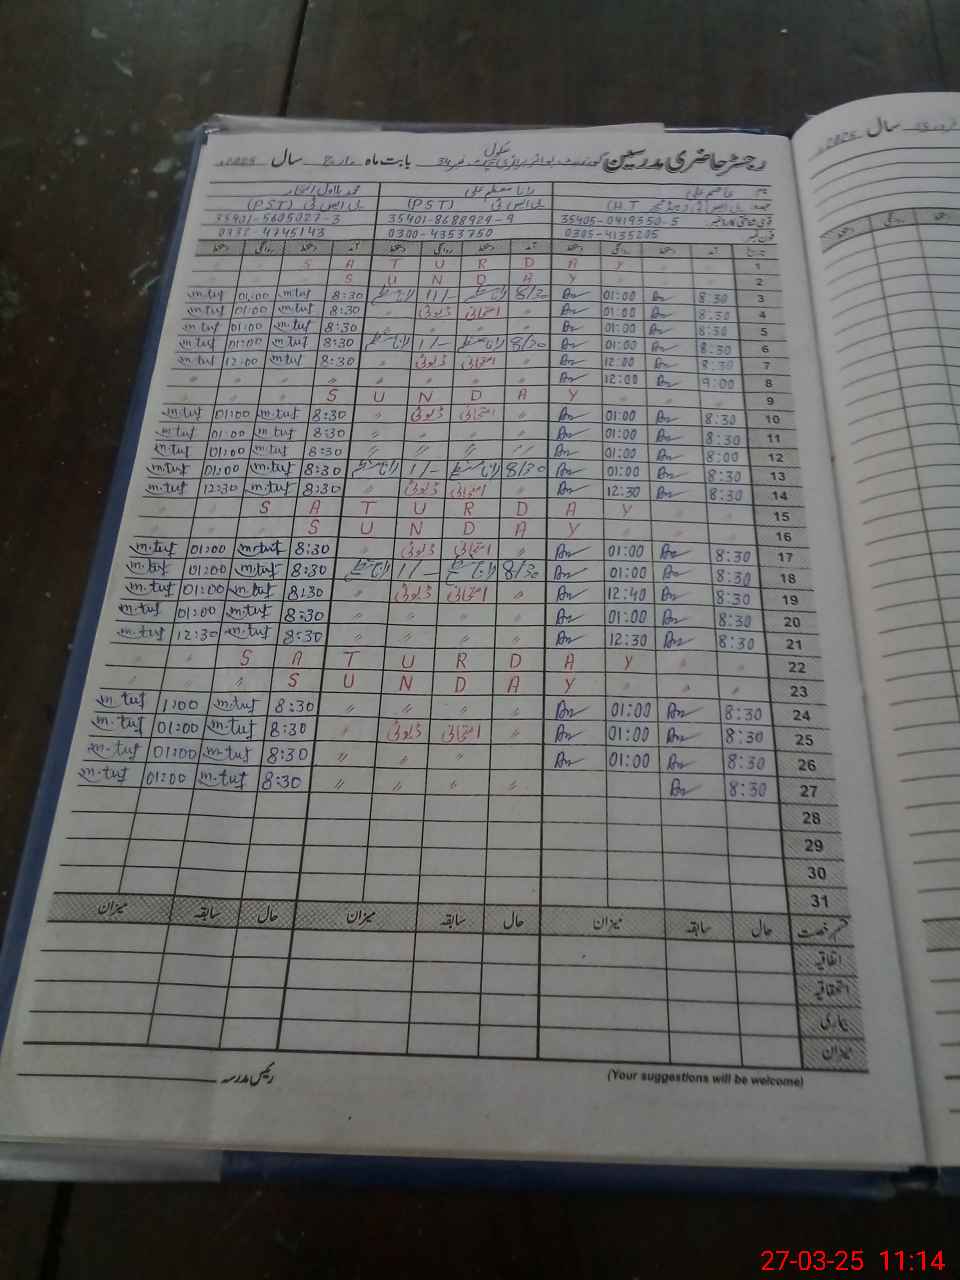 رجسٹر حاضری مدرسین گورنمنٹ بوائز پرائمری سکول چک نمبر 34 بابت ماہ مارچ سال 2025ء
نام
(H.T) پی ایس ٹی (PST) پی ایس ٹی (PST)
35405-0419550-5 35401-8688929-9 35401-5605027-3
فون نمبر 0305-4135205 0300-4353750
تاریخ آمد دستخط روانگی دستخط آمد دستخط روانگی دستخط آمد دستخط روانگی دستخط
1 S A T U R D A Y
2 S U N D A Y
3 8:30 01:00 8/30 1/- 8:30 m.tuf 01:00 m.tuf
4 8:30 01:00 " امتحانی ڈیوٹی " 8:30 m.tuf 01:00 m.tuf
5 8:30 01:00 " " " " 8:30 m.tuf 01:00 m.tuf
6 8:30 01:00 8/30 1/- 8:30 m.tuf 01:00 m.tuf
7 8:30 12:00 " امتحانی ڈیوٹی " 8:30 m.tuf 12:00 m.tuf
8 9:00 12:00 " " " " " " " "
9 S U N D A Y
10 8:30 01:00 " امتحانی ڈیوٹی " 8:30 m.tuf 01:00 m.tuf
11 8:30 01:00 " " " " 8:30 m.tuf 01:00 m.tuf
12 8:00 01:00 " " " " 8:30 m.tuf 01:00 m.tuf
13 8:30 01:00 8/30 1/- 8:30 m.tuf 01:00 m.tuf
14 8:30 12:30 " امتحانی ڈیوٹی " 8:30 m.tuf 12:30 m.tuf
15 S A T U R D A Y
16 S U N D A Y
17 8:30 01:00 " امتحانی ڈیوٹی " 8:30 m.tuf 01:00 m.tuf
18 8:30 01:00 8/30 1/- 8:30 m.tuf 01:00 m.tuf
19 8:30 12:40 " امتحانی ڈیوٹی " 8:30 m.tuf 01:00 m.tuf
20 8:30 01:00 " " " " 8:30 m.tuf 01:00 m.tuf
21 8:30 12:30 " " " " 8:30 m.tuf 12:30 m.tuf
22 S A T U R D A Y
23 S U N D A Y
24 8:30 01:00 " " " " 8:30 m.tuf 1:00 m.tuf
25 8:30 01:00 " امتحانی ڈیوٹی " 8:30 m.tuf 01:00 m.tuf
26 8:30 01:00 " " " " 8:30 m.tuf 01:00 m.tuf
27 8:30 " " " " 8:30 m.tuf 01:00 m.tuf
28
29
30
31
قسم رخصت حال سابقہ میزان حال سابقہ میزان حال سابقہ میزان
اتفاقیہ
استحقاقیہ
بیماری
میزان
(Your suggestions will be welcome) رئیس مدرسہ
سال 2025ء
27-03-25 11:14